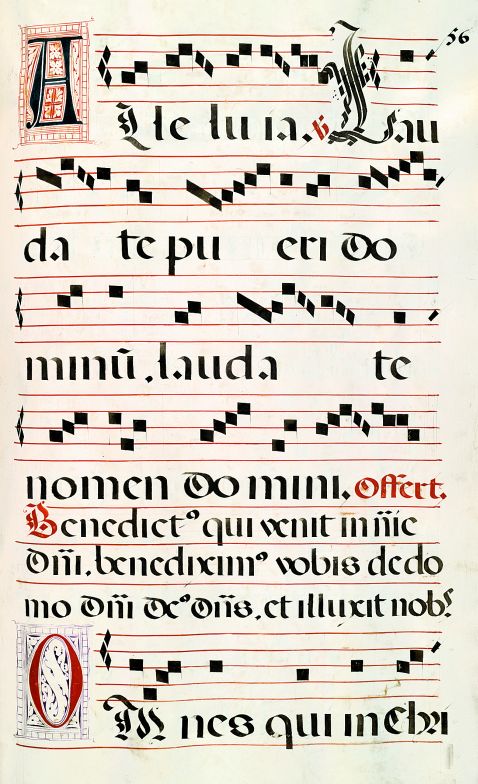 56
Alleluia. ℣. Lau
da te pueri do
minū, lauda te
nomen domini. Offert.
Benedictꝰ qui venit in nn̄ie
dn̄i. benediximꝰ vobis de do
mo dn̄i deꝰ dn̄s, et illuxit nob⁹
Omnes qui in Chri